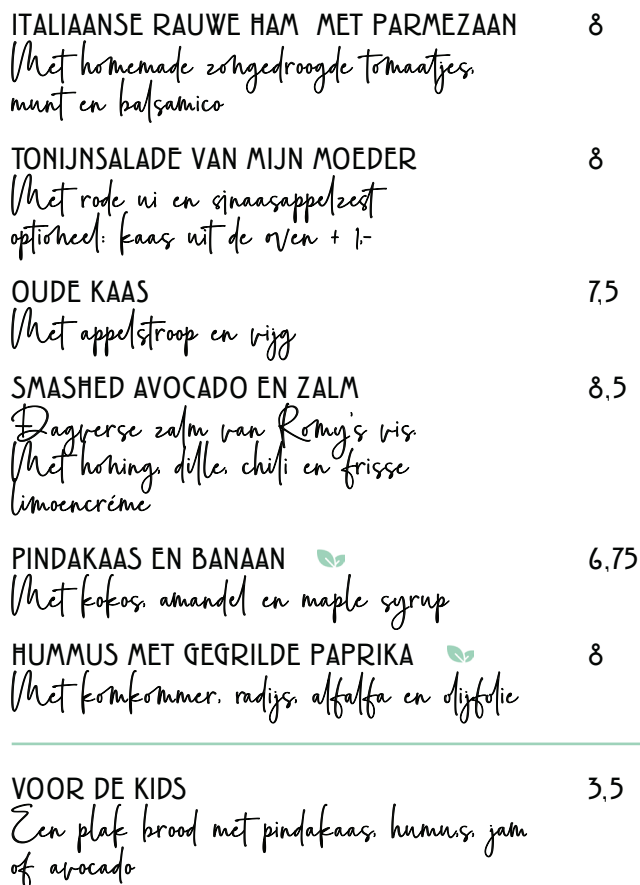 ITALIAANSE RAUWE HAM MET PARMEZAAN 8
Met homemade zongedroogde tomaatjes,
munt en balsamico
TONIJNSALADE VAN MIJN MOEDER 8
Met rode ui en sinaasappelzest
optioneel: kaas uit de oven + 1,-
OUDE KAAS 7,5
Met appelstroop en vijg
SMASHED AVOCADO EN ZALM 8,5
Dagverse zalm van Romy's vis.
Met honing, dille, chili en frisse
limoencréme
PINDAKAAS EN BANAAN 6,75
Met kokos, amandel en maple syrup
HUMMUS MET GEGRILDE PAPRIKA 8
Met komkommer, radijs, alfalfa en olijfolie
VOOR DE KIDS 3,5
Een plak brood met pindakaas, humus, jam
of avocado